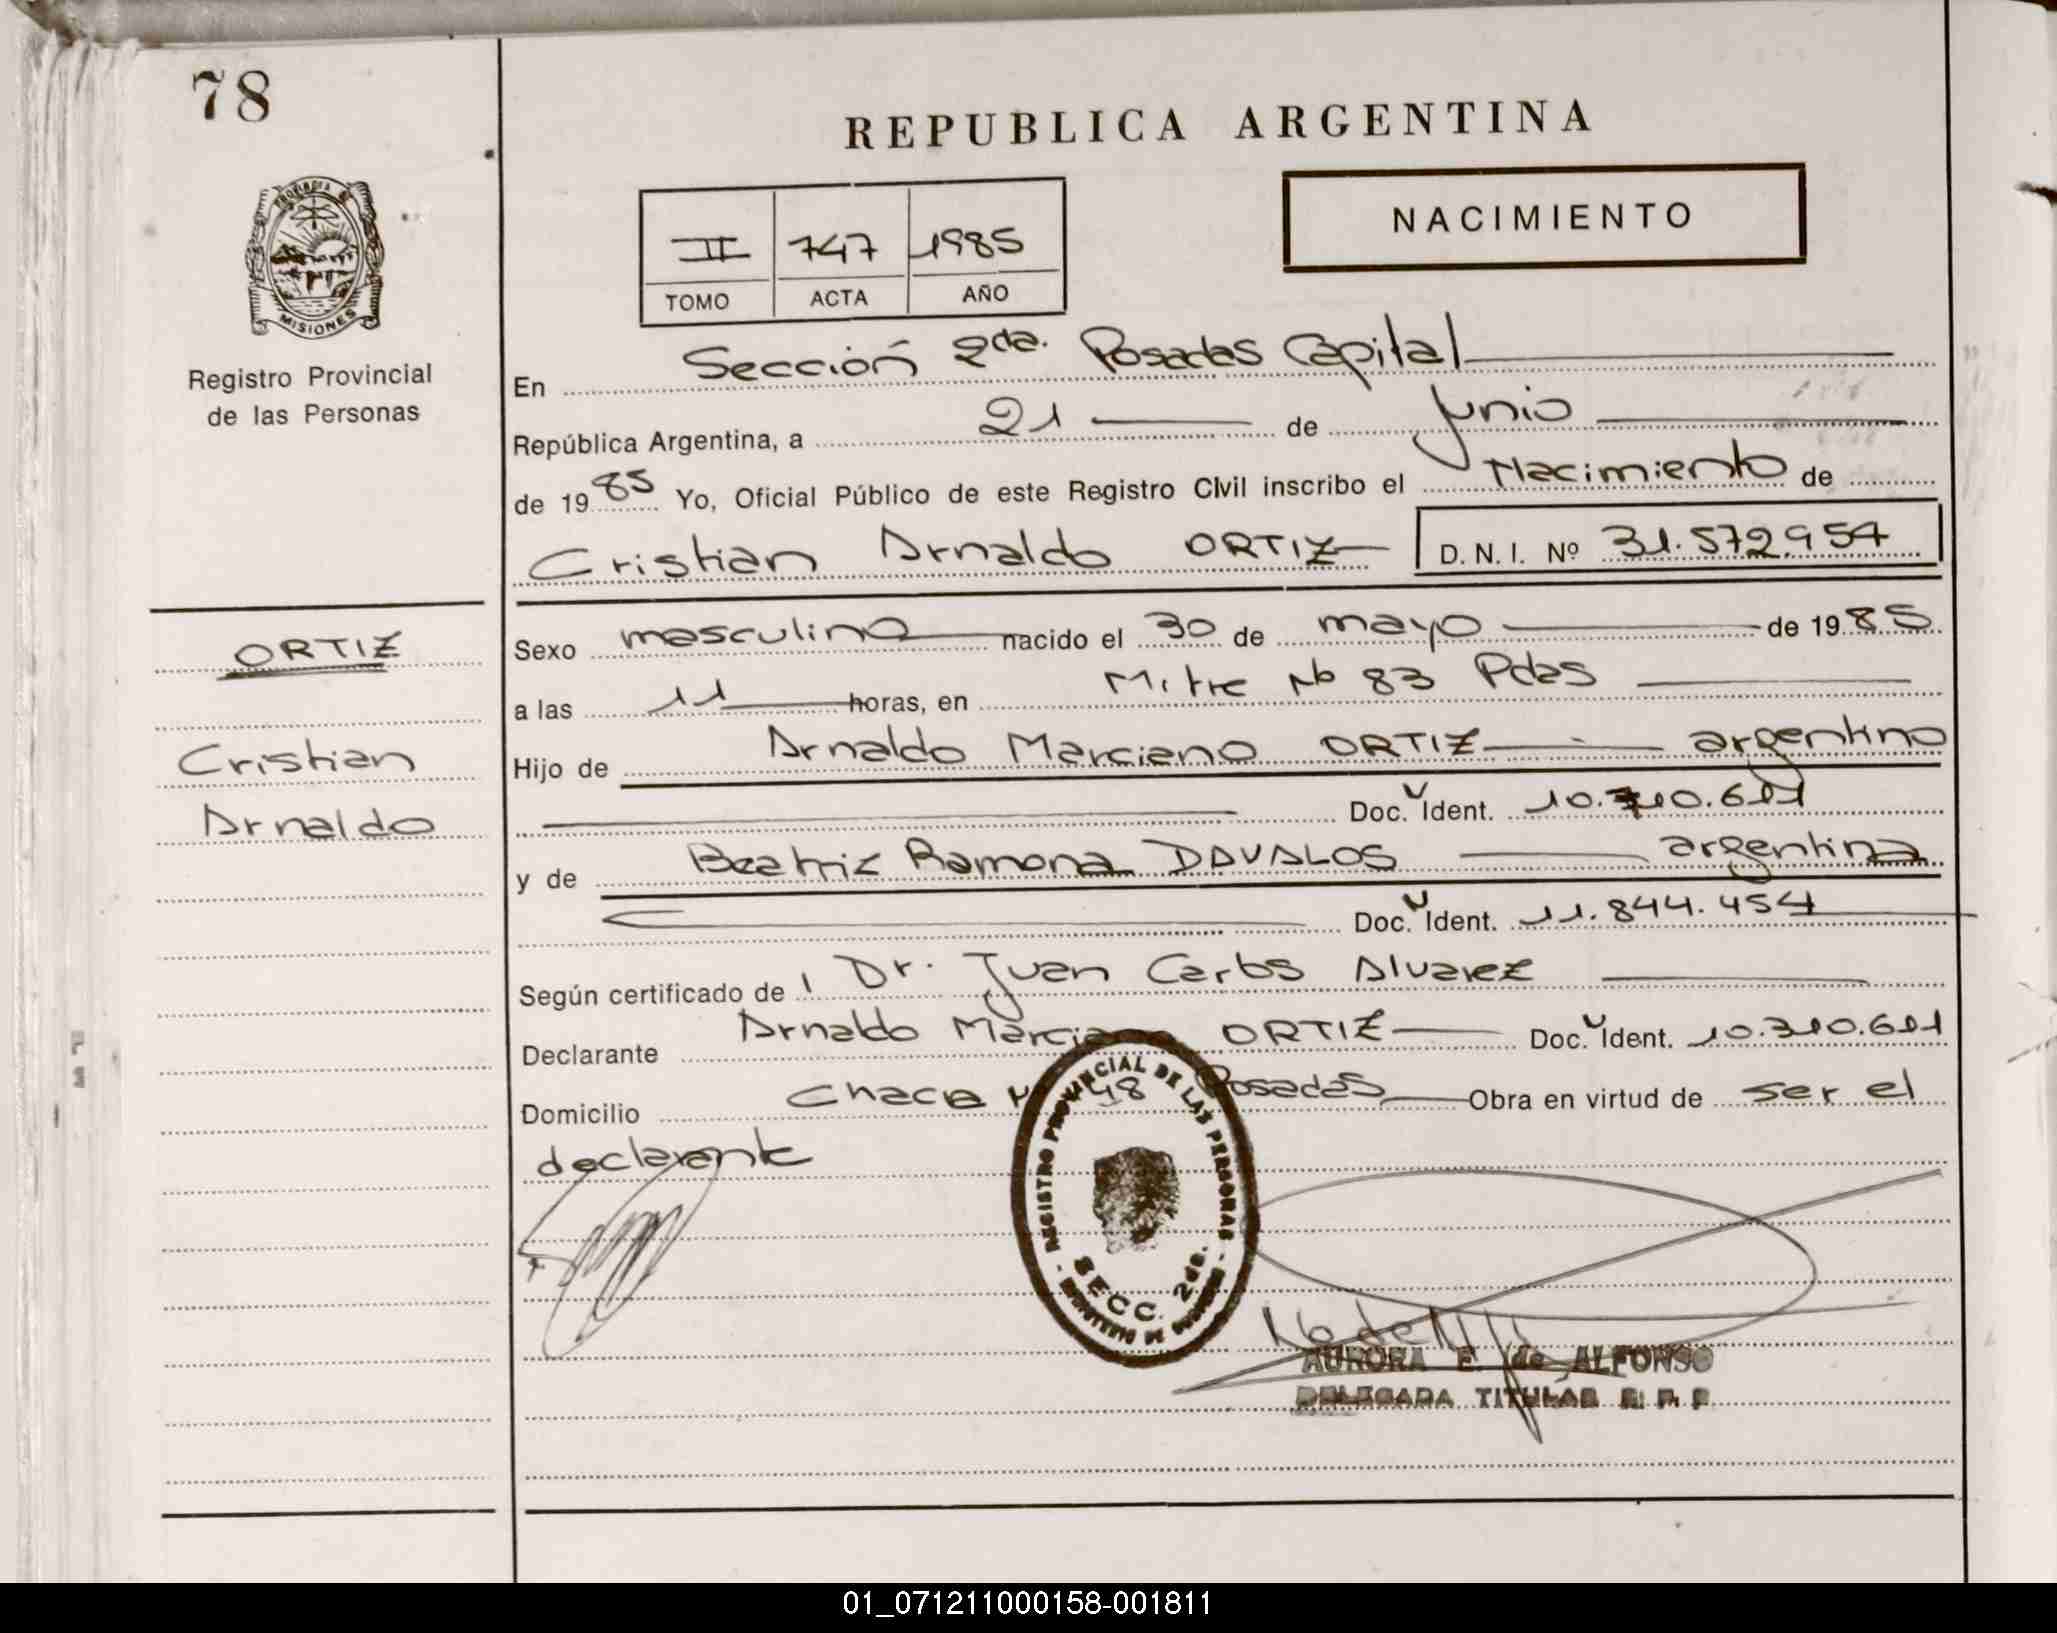 78
REPUBLICA ARGENTINA
NACIMIENTO
II 747 1985
TOMO ACTA AÑO
PROVINCIA DE
MISIONES
Registro Provincial
de las Personas
En Sección 2da. Posadas Capital
República Argentina, a 21 de Junio
de 1985 Yo, Oficial Público de este Registro Civil inscribo el Nacimiento de
Cristian Arnaldo ORTIZ D.N.I. Nº 31.572.954
ORTIZ
Cristian
Arnaldo
Sexo masculino nacido el 30 de mayo de 1985
a las 11 horas, en Mitre Nº 83 Pdas
Hijo de Arnaldo Marciano ORTIZ argentino
Doc. Ident.
y de Beatriz Ramona DAVALOS argentina
Doc. Ident. 11.844.454
Según certificado de Dr. Juan Carlos Alvarez
Declarante Arnaldo Marciano ORTIZ Doc. Ident. 10.310.611
Domicilio Chacra 48 Posadas Obra en virtud de ser el
declarante
REGISTRO PROVINCIAL DE LAS PERSONAS
SECC. 2da.
AURORA E. de ALFONSO
DELEGADA TITULAR R. P. P.
01_071211000158-001811